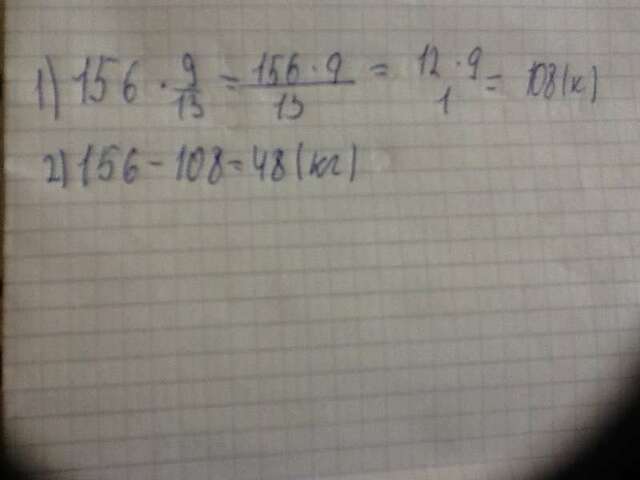 1) 156 · 9/13 = 156 · 9/13 = 12 · 9/1 = 108 (к)
2) 156 - 108 = 48 (кг)